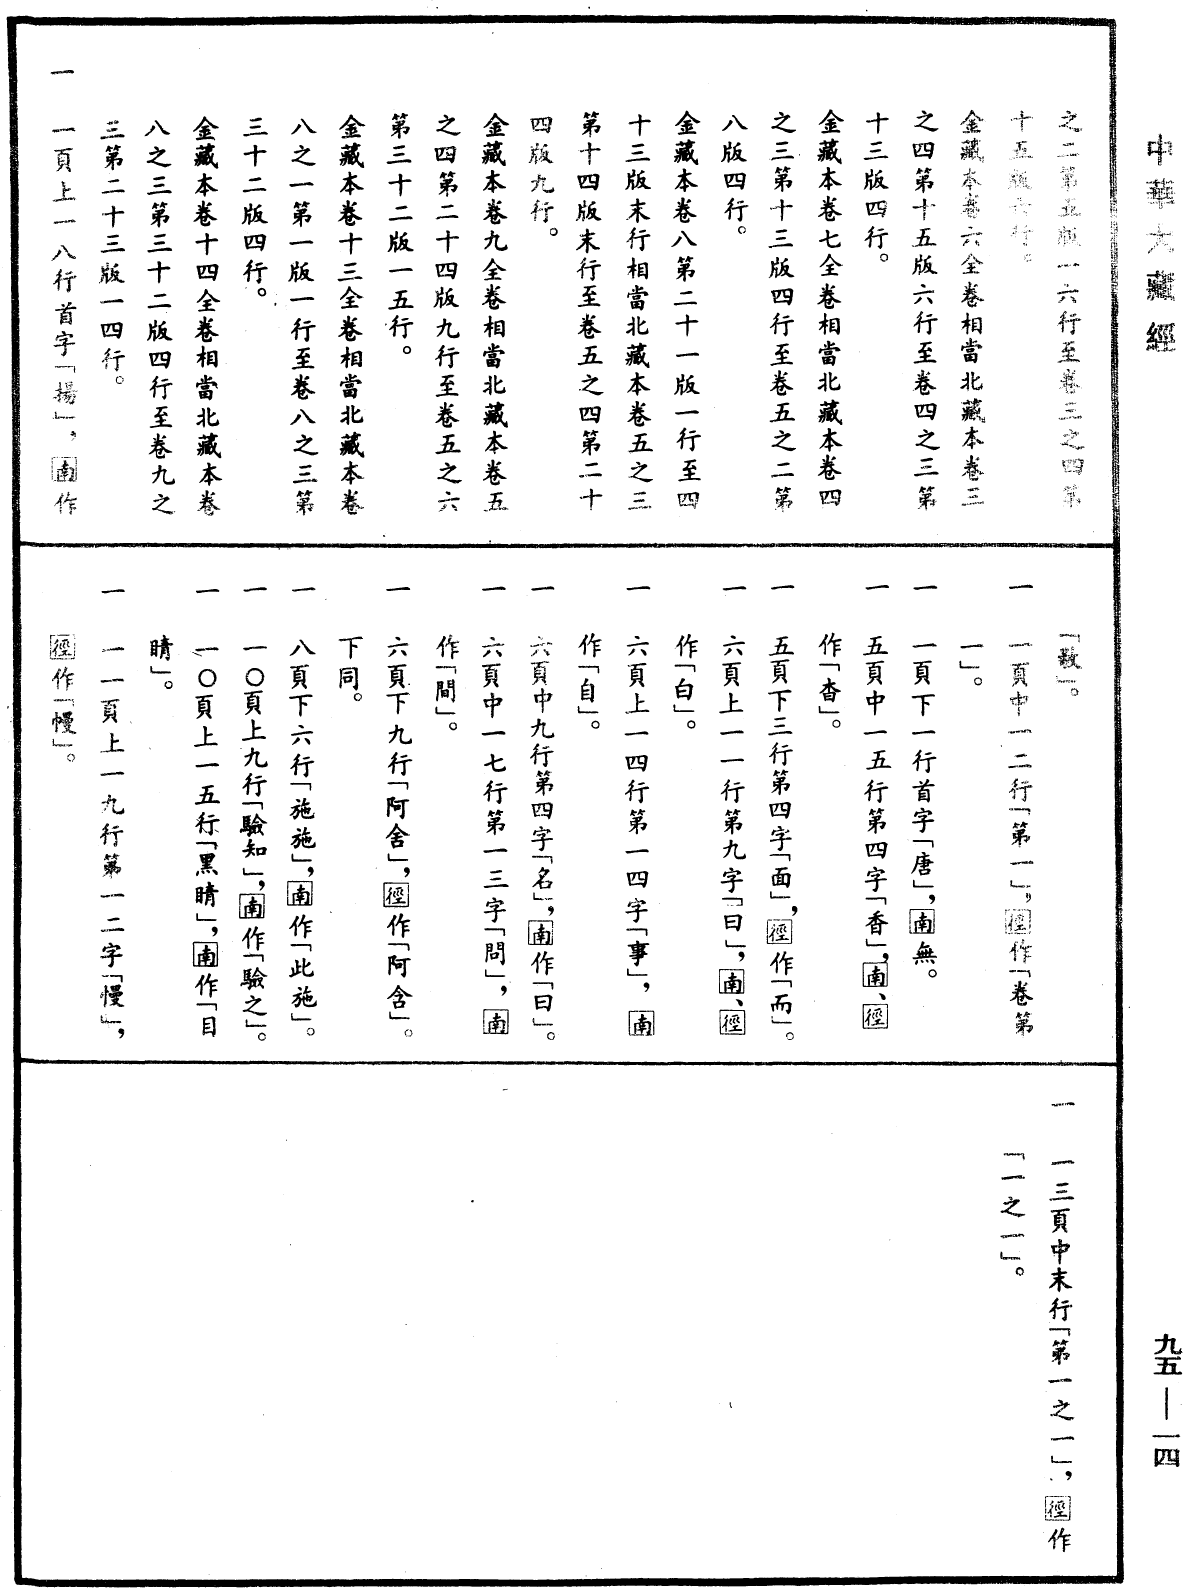 中華大藏經
之二第五版一六行至卷三之四第
十五版六行。
金藏本卷六全卷相當北藏本卷三
之四第十五版六行至卷四之三第
十三版四行。
金藏本卷七全卷相當北藏本卷四
之三第十三版四行至卷五之二第
八版四行。
金藏本卷八第二十一版一行至四
十三版末行相當北藏本卷五之三
第十四版末行至卷五之四第二十
四版九行。
金藏本卷九全卷相當北藏本卷五
之四第二十四版九行至卷五之六
第三十二版一五行。
金藏本卷十三全卷相當北藏本卷
八之一第一版一行至卷八之三第
三十二版四行。
金藏本卷十四全卷相當北藏本卷
八之三第三十二版四行至卷九之
三第二十三版一四行。
一 一頁上一八行首字「揚」，南作
「敭」。
一 一頁中一二行「第一」，徑作「卷第
一」。
一 一頁下一行首字「唐」，南無。
一 五頁中一五行第四字「香」，南、徑
作「杳」。
一 五頁下三行第四字「面」，徑作「而」。
一 六頁上一一行第九字「曰」，南、徑
作「白」。
一 六頁上一四行第一四字「事」，南
作「自」。
一 六頁中九行第四字「名」，南作「曰」。
一 六頁中一七行第一三字「問」，南
作「間」。
一 六頁下九行「阿舍」，徑作「阿含」。
下同。
一 八頁下六行「施施」，南作「此施」。
一 一〇頁上九行「驗知」，南作「驗之」。
一 一〇頁上一五行「黑睛」，南作「目
睛」。
一 一一頁上一九行第一二字「慢」，
徑作「幔」。
一 一三頁中末行「第一之一」，徑作
「一之一」。
九五—一四